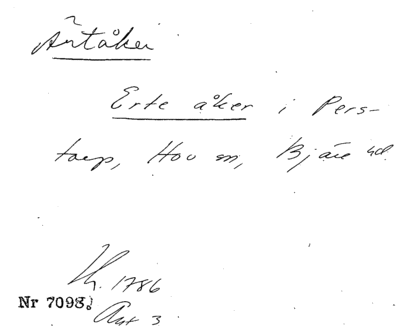 Ärtåker
Erte åker i Pers-
torp, Hov sn, Bjäre hd.
Lh. 1786
Nr 7098.
Akt 3